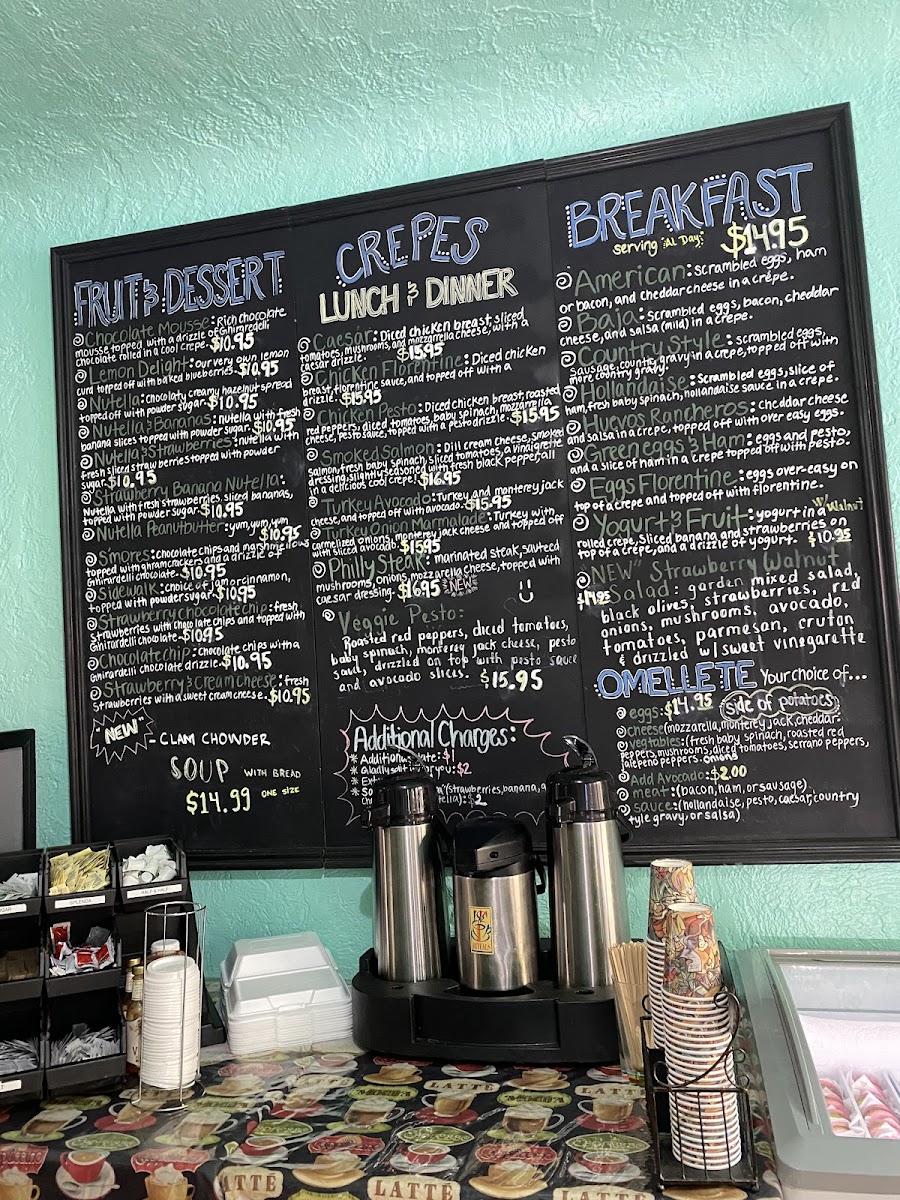 FRUIT & DESSERT
Chocolate Mousse: Rich chocolate
mousse topped with a drizzle of Ghirardelli
chocolate rolled in a cool crepe. $10.95
Lemon Delight: our very own lemon
curd topped off with baked blueberries. $10.95
Nutella: chocolaty creamy hazelnut spread
topped off with powder sugar. $10.95
Nutella & Bananas: nutella with fresh
banana slices topped with powder sugar. $10.95
Nutella & Strawberries: nutella with
fresh sliced strawberries topped with powder
sugar. $10.95
Strawberry Banana Nutella:
Nutella with fresh strawberries, sliced bananas,
topped with powder sugar. $10.95
Nutella Peanutbutter: yum, yum, yum
$10.95
S'mores: chocolate chips and marshmellows
topped with ghramcrackers and a drizzle of
Ghirardelli chocolate. $10.95
Sidewalk: choice of jam or cinnamon,
topped with powder sugar. $10.95
Strawberry chocolate chip: fresh
strawberries with chocolate chips and topped with
Ghirardelli chocolate. $10.95
Chocolate chip: chocolate chips with a
Ghirardelli chocolate drizzle. $10.95
Strawberry & Cream Cheese: fresh
strawberries with a sweet cream cheese. $10.95
"NEW"
- CLAM CHOWDER
SOUP WITH BREAD
$14.99 ONE SIZE
CREPES
LUNCH & DINNER
Caesar: Diced chicken breast, sliced
tomatoes, mushrooms, and mozzarella cheese, with a
caesar drizzle. $15.95
Chicken Florentine: Diced chicken
breast, florentine sauce, and topped off with a
drizzle. $15.95
Chicken Pesto: Diced chicken breast, roasted
red peppers, diced tomatoes, baby spinach, mozzarella
cheese, pesto sauce, topped with a pesto drizzle. $15.95
Smoked Salmon: Dill cream cheese, smoked
salmon, fresh baby spinach, sliced tomatoes, a vinaigrette
dressing, slightly seasoned with fresh black pepper, all
in a delicious cool crepe! $16.95
Turkey Avocado: Turkey, and monterey jack
cheese, and topped off with avocado. $15.95
Turkey Onion Marmalade: Turkey with
carmelized onions, monterey jack cheese and topped off
with sliced avocado. $15.95
Philly Steak: marinated steak, sauteed
mushrooms, onions, mozzarella cheese, topped with
caesar dressing. $16.95 NEW
Veggie Pesto:
Roasted red peppers, diced tomatoes,
baby spinach, monterey jack cheese, pesto
saud, drizzled on top with pesto sauce
and avocado slices. $15.95
Additional Charges:
* Additional plate: $1
* Gladly split for you: $2
* Ext
* So (strawberries, banana,
Nutella): $2
BREAKFAST
serving Al Day $14.95
American: scrambled eggs, ham
or bacon, and cheddar cheese in a crepe.
Baja: Scrambled eggs, bacon, cheddar
cheese, and salsa (mild) in a crepe.
Country Style: scrambled eggs,
sausage, country gravy in a crepe, topped off with
more country gravy.
Hollandaise: Scrambled eggs, slice of
ham, fresh baby spinach, hollandaise sauce in a crepe.
Huevos Rancheros: cheddar cheese
and salsa in a crepe, topped off with over easy eggs.
Green eggs & Ham: eggs and pesto,
and a slice of ham in a crepe topped off with pesto.
Eggs Florentine: eggs over-easy on
top of a crepe and topped off with florentine.
Yogurt & Fruit: yogurt in a w/ walnut
rolled crepe, sliced banana and strawberries on
top of a crepe, and a drizzle of yogurt. $10.95
"NEW" Strawberry Walnut
$14.95 Salad: garden mixed salad,
black olives, strawberries, red
onions, mushrooms, avocado,
tomatoes, parmesan, cruton
& drizzled w/ sweet vinegarette
OMELLETE Your choice of...
eggs: $14.95 side of potatoes
cheese (mozzarella, monterey jack, cheddar
vegtables: (fresh baby spinach, roasted red
peppers, mushrooms, diced tomatoes, serrano peppers,
jalepeno peppers. onions
Add Avocado: $2.00
meat: (bacon, ham, or sausage)
sauce: (hollandaise, pesto, caesar, country
style gravy, or salsa)
SPLENDA
HALF & HALF
LATTE
LATTE
LATTE
LATTE